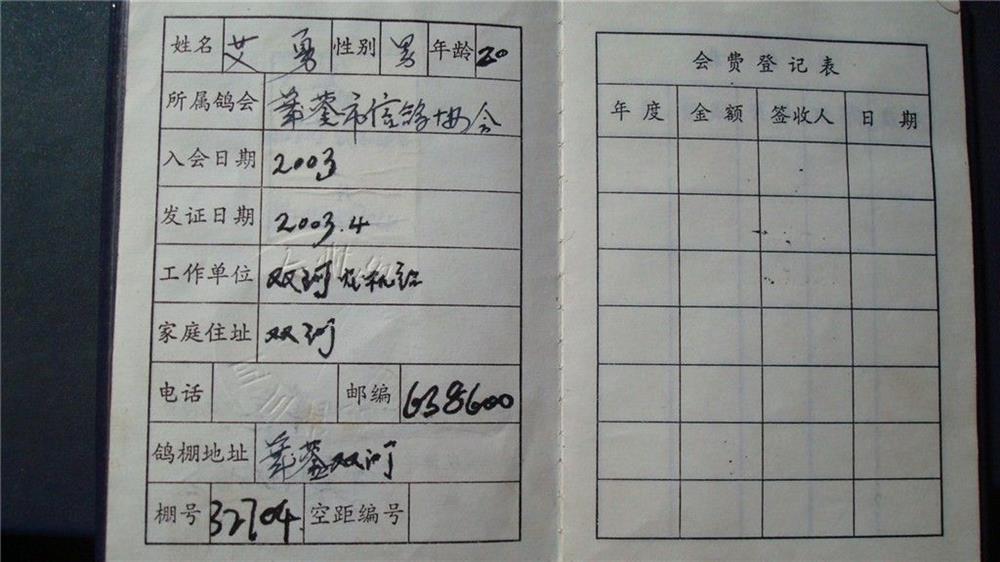 姓名 艾勇 性别 男 年龄 20
所属鸽会 华蓥市信鸽协会
入会日期 2003
发证日期 2003.4
工作单位 双河
家庭住址 双河
电话 邮编 638600
鸽棚地址 华蓥双河
棚号 32704 空距编号
会费登记表
年度 金额 签收人 日期